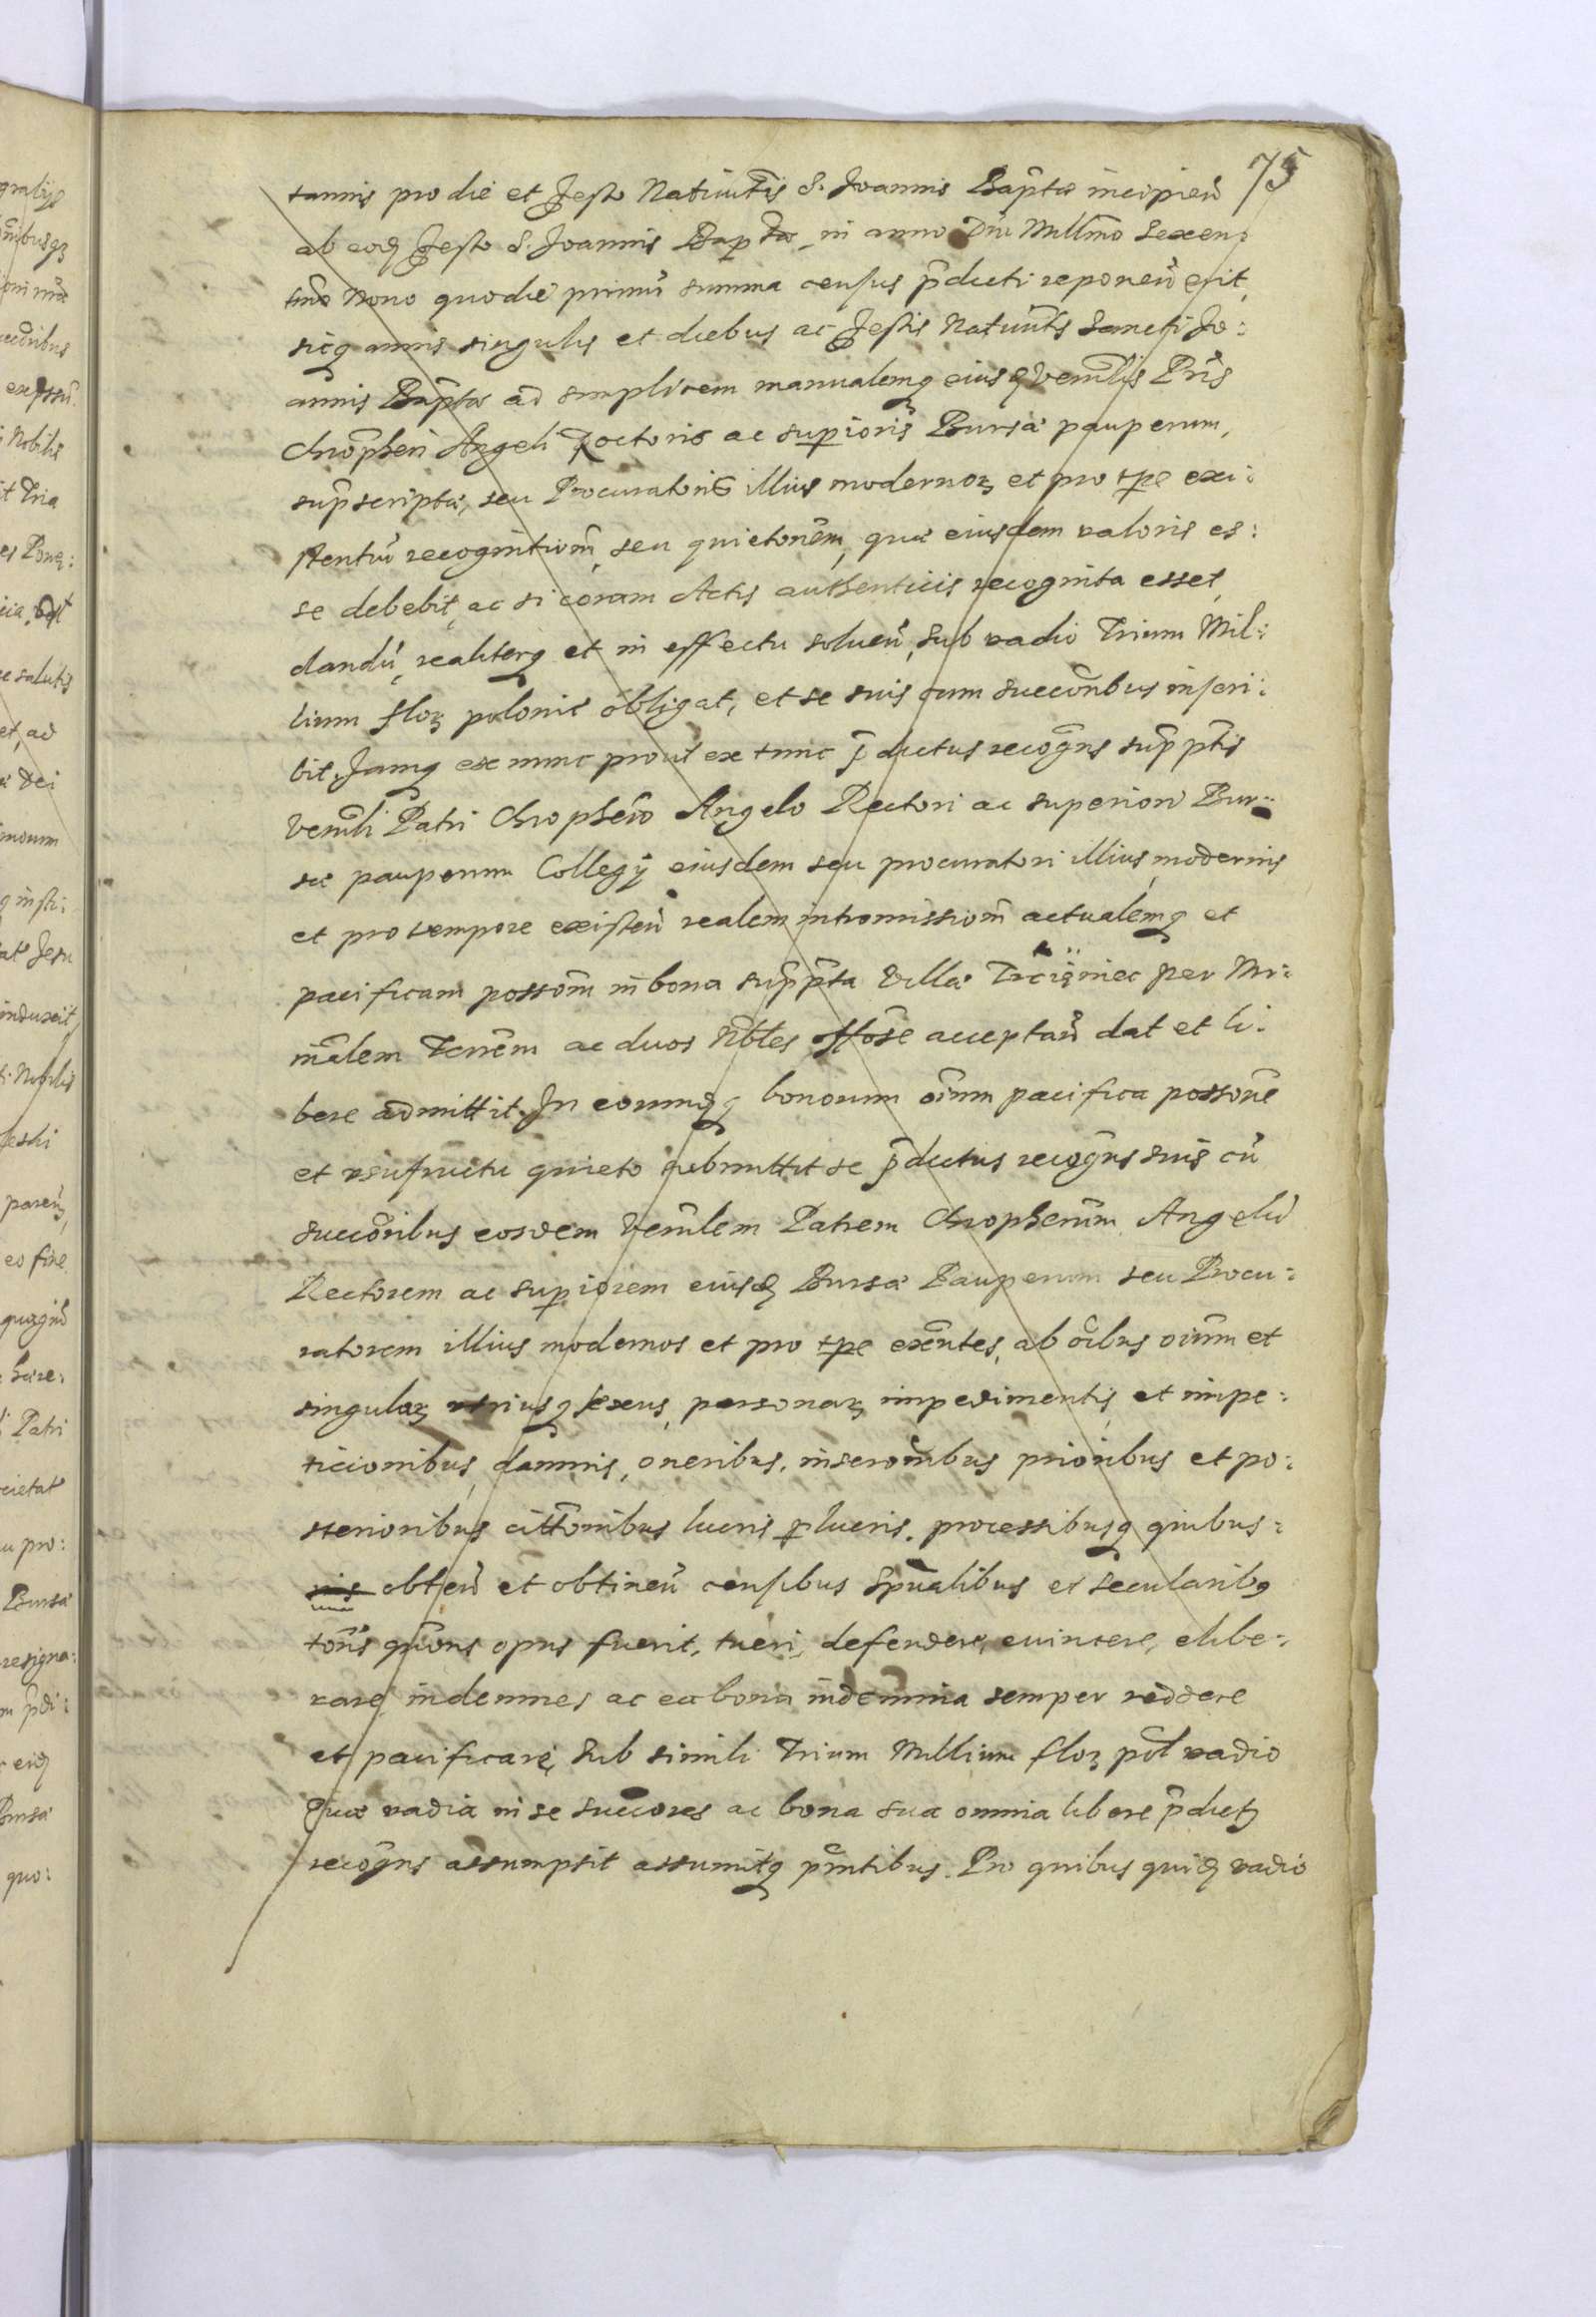 75
tannis pro die et Festo Natiuitis S. Joannis Baptæ incipień
ab eoq Festo S. Joannis Bap tæ in anno Dni Millmo Sexen:
tmo Nono quo die primũ summa census p̃dicti reponeń erit,
sicq annis singulis et diebus ac Festis Natiuitis Sancti Jo:
annis Baptæ ad simplicem manualemq eiusq Venrlis Pris
Chrõpheri Angeli Rectoris ac superioris Bursæ pauperum,
sup̃scriptæ, seu Procuratoris illius modernoꝝ et pro tpe exi:
stentiũ recognitiom̃, seu quietonem̃, quæ eiusdem valoris es:
se debebit, ac si coram Actis authenticis recognita esset,
dandũ, realiterq et in effectu soluen̂, sub vadio Trium Mil:
lium floꝝ polonic obligat, et se suis cum succõribus inscri:
bit. Jamq ex nunc prout ex tunc p̃dictus recogñs sup̃ptis
Venrli Patri Chrophero Angelo Rectori ac superiori Bur:
sæ pauperum Collegij eiusdem seu procuratori illius modernis
et pro tempore existeń realem intromissiom̃ actualemq et
pacificam possõm in bona sup̃pta Villæ Trcięniec per Mi:
nr̃alem Terrẽm ac duos Nbles offõse acceptań dat et li:
bere admittit. In eorumqq bonorum oĩum pacifica possõne
et vsufructu quieto submittit se p̃dictus recogñs suis cũ
succõribus eosdem Venrlem Patrem Chropherum Angelũ
Rectorem ac superiorem eiusq Bursæ Pauperum seu Procu:
ratorem illius modernos et pro tpe exẽntes, ab oĩbus oĩum et
singuloꝝ vtriusq sexus, personaꝝ impedimentis, et impe:
ticionibus, damnis, oneribus, inscrõnibus prioribus et po:
sterioribus, cittõnibus lucris perlucris, processibusq quibus:
uis obteń et obtineń censibus Spũalibus et secularibq
tõns quõns opus fuerit, tueri, defendere, euincere, elibe:
rare, indemnes ac ea bona indemnia semper reddere
et pacificare, sub simili Trium Millium floꝝ pol vadio
Quæ vadia in se succõres ac bona sua omnia libere p̃dictq
recogñs assumpsit assumitq pñtibus. Pro quibus quiq vadio